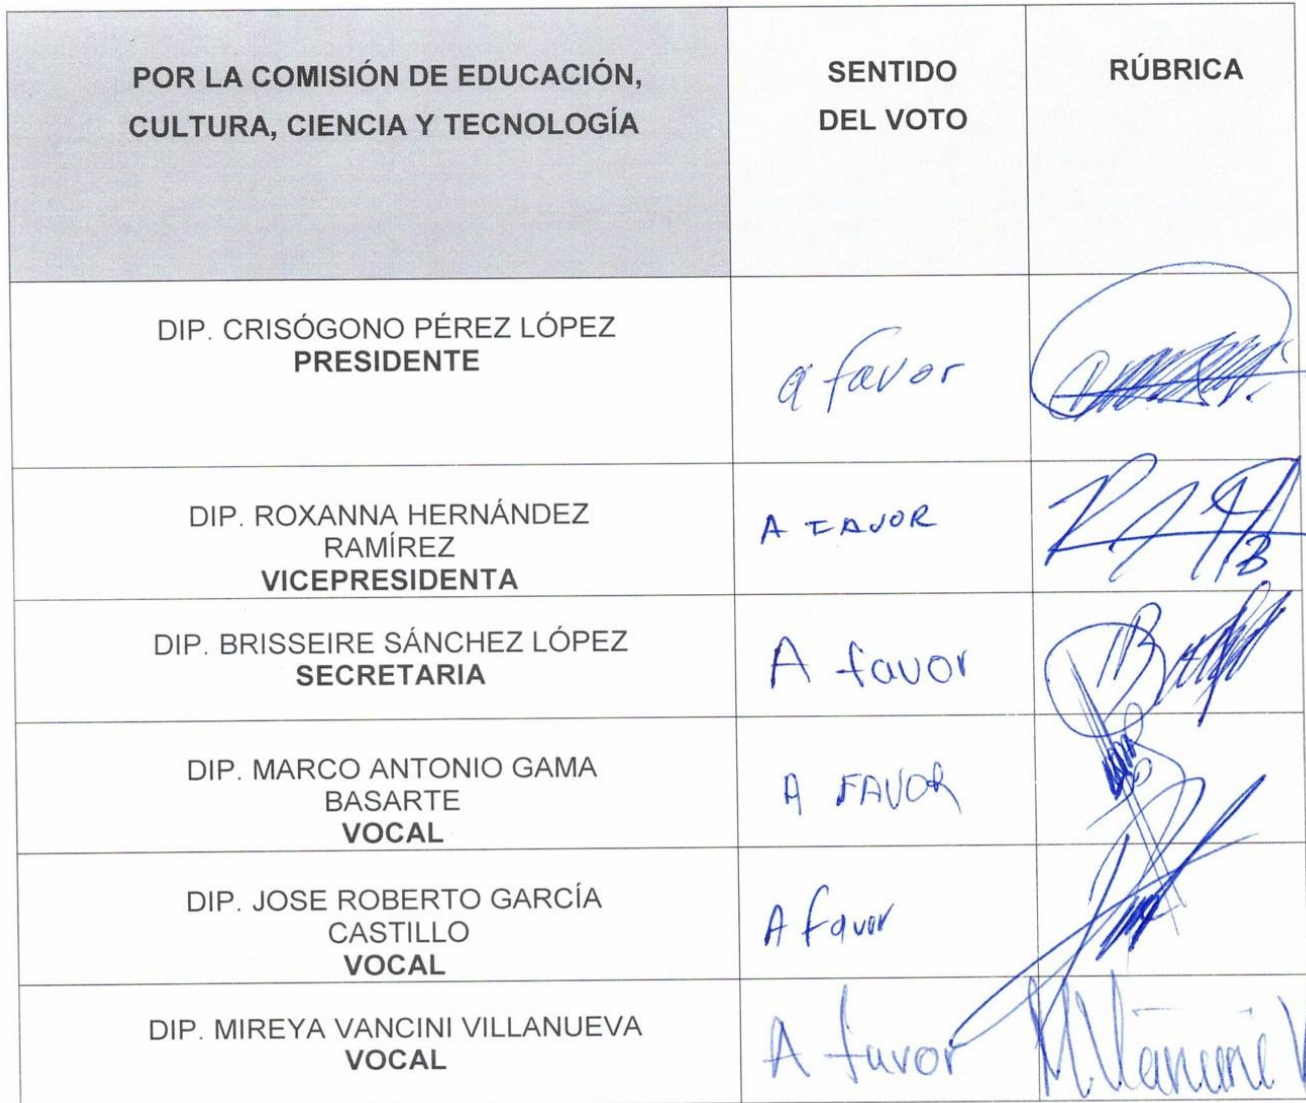 POR LA COMISIÓN DE EDUCACIÓN,
CULTURA, CIENCIA Y TECNOLOGÍA
SENTIDO
DEL VOTO
RÚBRICA
DIP. CRISÓGONO PÉREZ LÓPEZ
PRESIDENTE
a favor
DIP. ROXANNA HERNÁNDEZ
RAMÍREZ
VICEPRESIDENTA
A FAVOR
DIP. BRISSEIRE SÁNCHEZ LÓPEZ
SECRETARIA
A favor
DIP. MARCO ANTONIO GAMA
BASARTE
VOCAL
A FAVOR
DIP. JOSE ROBERTO GARCÍA
CASTILLO
VOCAL
A favor
DIP. MIREYA VANCINI VILLANUEVA
VOCAL
A favor